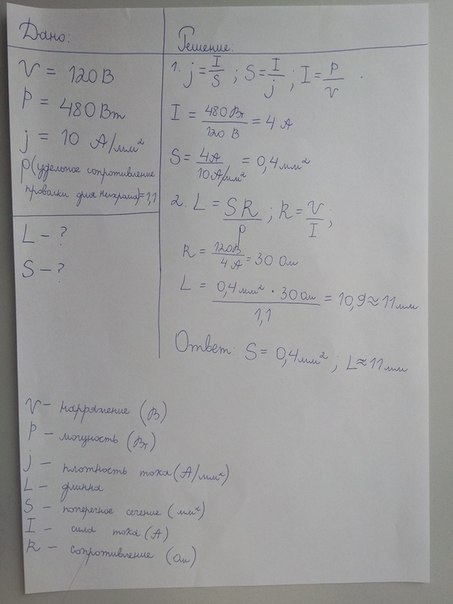 Дано:
V = 120 В
P = 480 Вт
j = 10 А/мм²
ρ (удельное сопротивление
проволки для нихрома) = 1,1
L - ?
S - ?
Решение:
1. j = I/S ; S = I/j ; I = P/V .
I = 480 Вт/120 В = 4 А
S = 4А/10 А/мм² = 0,4 мм²
2. L = SR/ρ ; R = V/I ;
R = 120В/4 А = 30 Ом
L = 0,4 мм² · 30 Ом/1,1 = 10,9 ≈ 11 мм
Ответ: S = 0,4 мм² ; L ≈ 11 мм
V - напряжение (В)
P - мощность (Вт)
j - плотность тока (А/мм²)
L - длинна
S - поперечное сечение (мм²)
I - сила тока (А)
R - сопротивление (Ом)